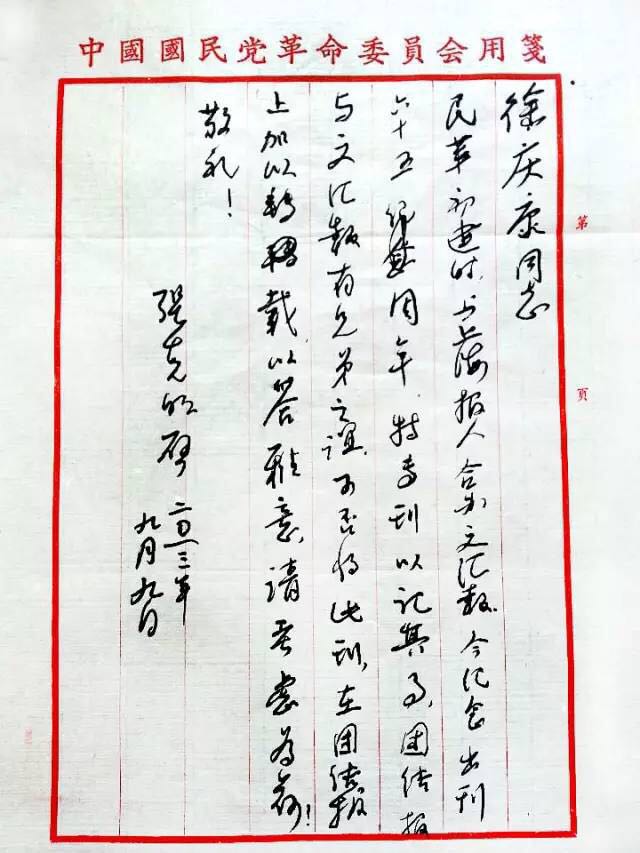 中國國民党革命委員会用箋
第 页
徐庆康同志
民革初建时,与上海报人合办文汇报.今汇会出刊
六十五 周年,特专刊以记其事,团结报
与文汇报有兄弟之谊,可否将此刊,在团结报
上加以转载以答雅意,请考虑为荷!
敬礼!
张克明 二〇一三年
九月九日